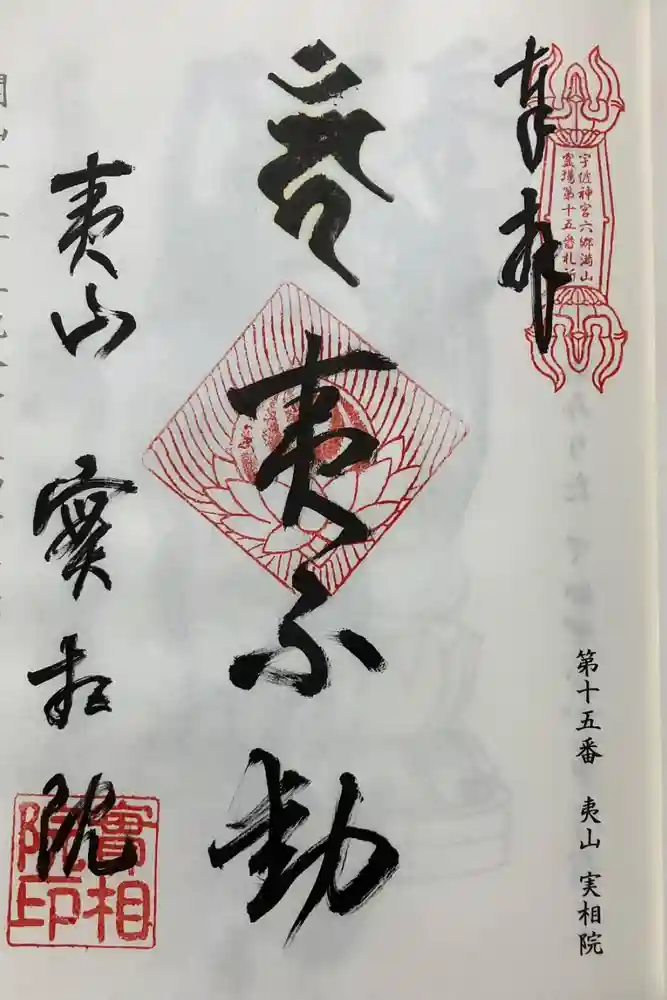 奉拝
宇佐神宮六郷満山
霊場第十五番札所
第十五番 夷山 実相院
夷不動
夷山 實相院
實相
院印